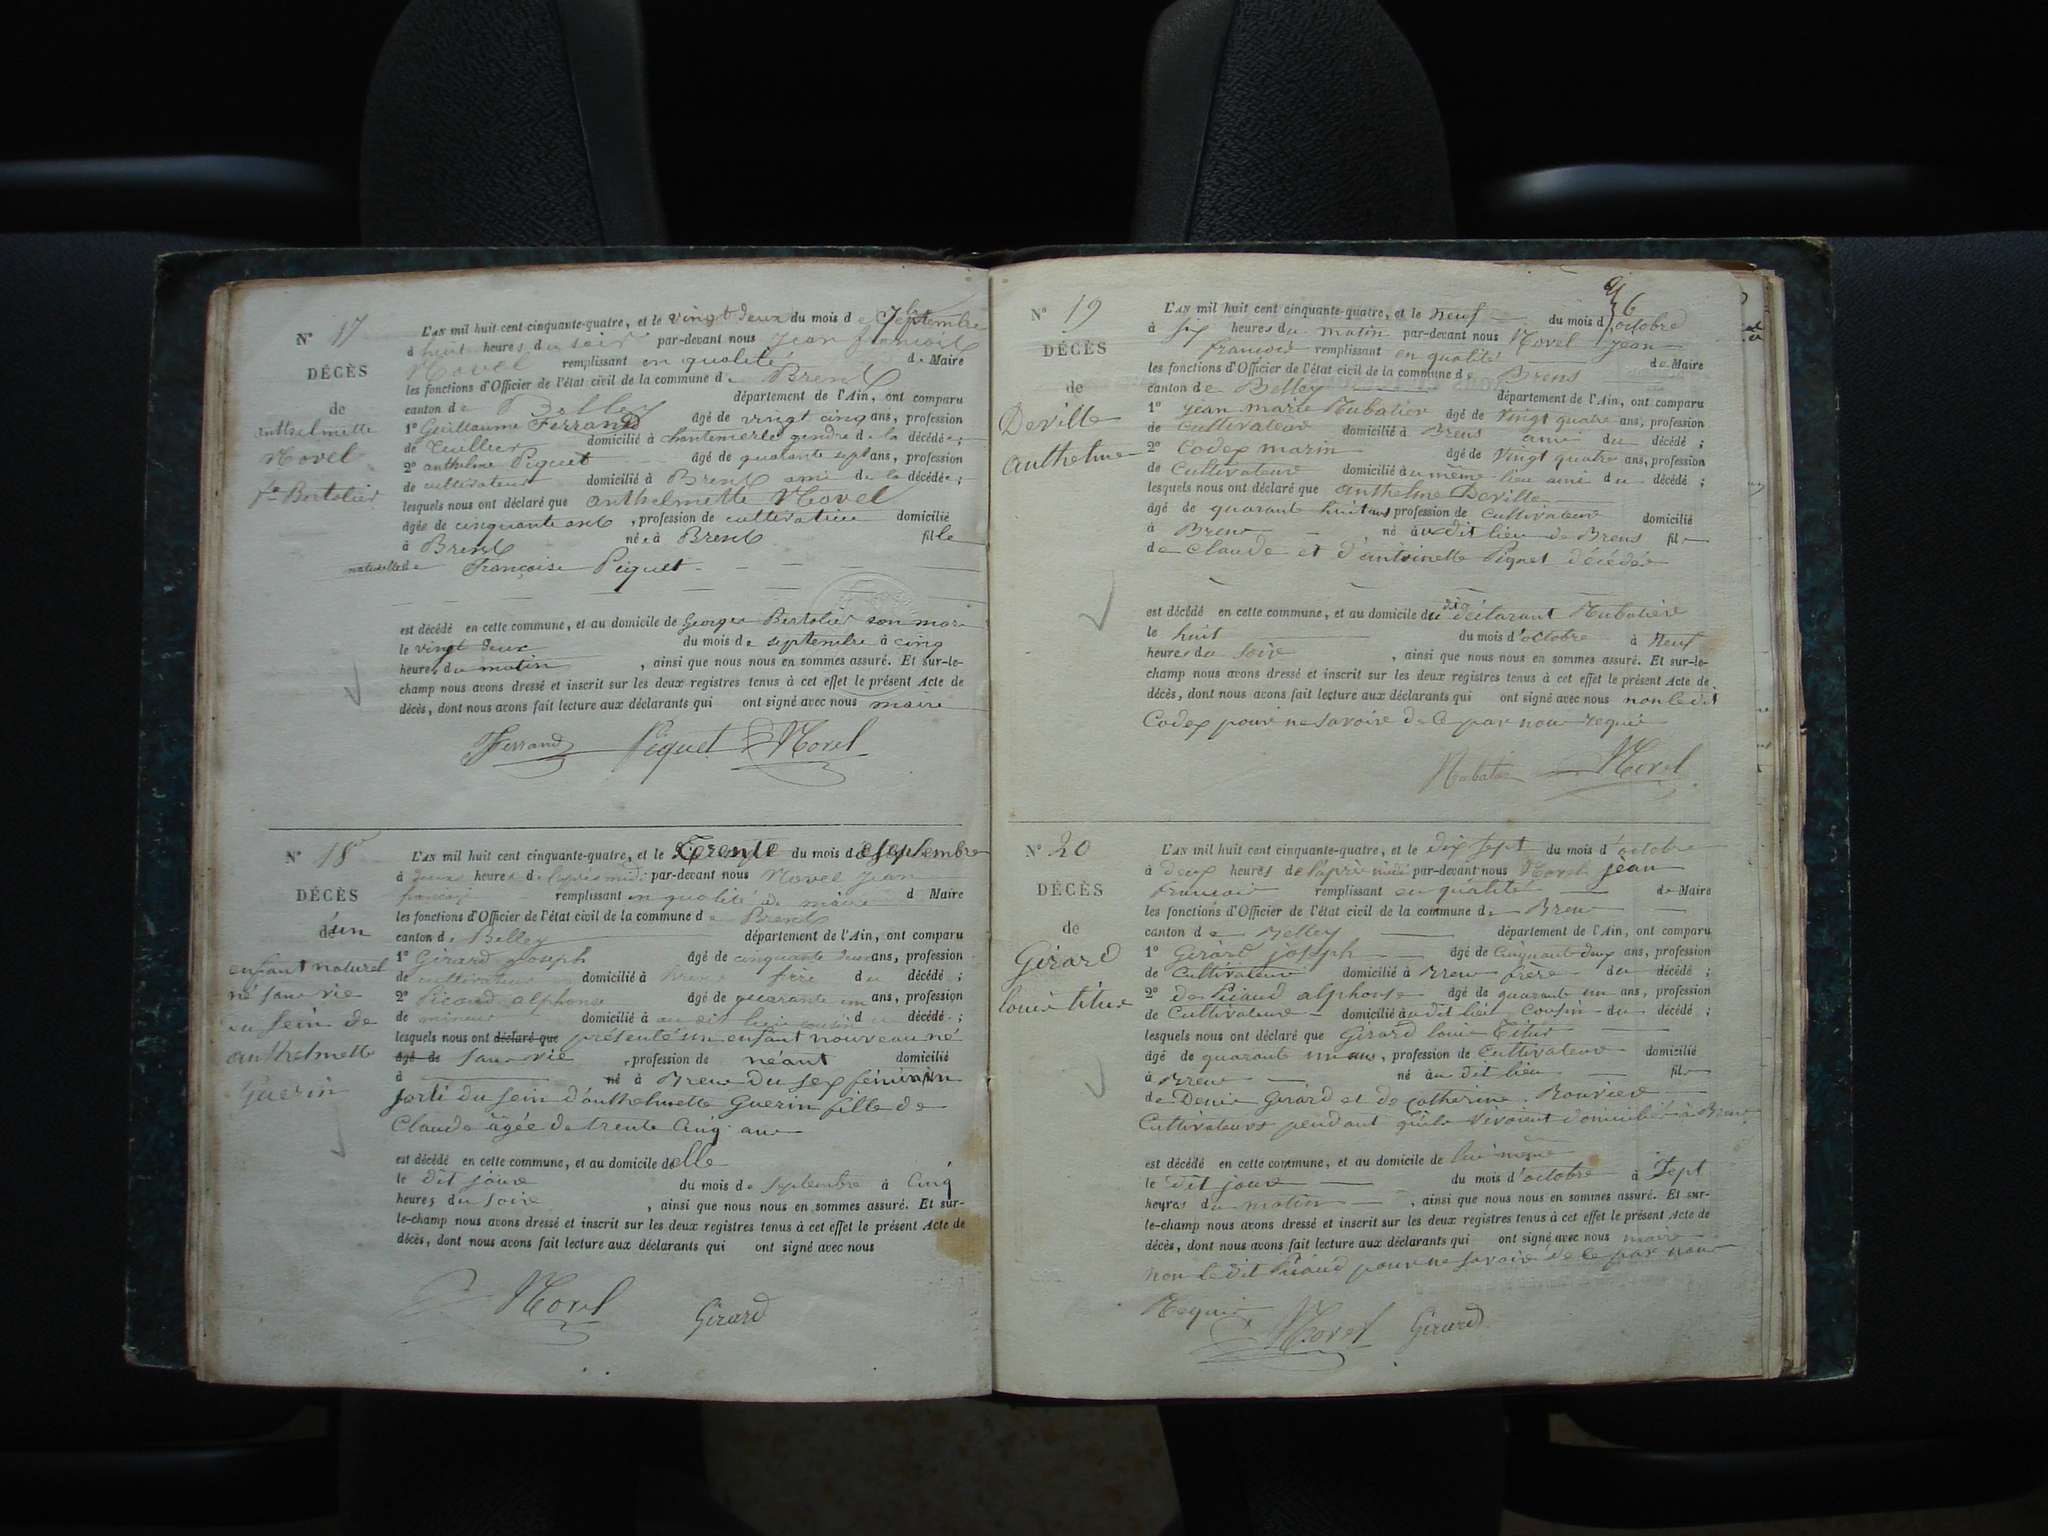 N° 17
DÉCÈS
de
anthelmette
Morel
fe Bertolier
L'AN mil huit cent cinquante-quatre, et le vingt deux du mois de Septembre
à huit heures du soir par-devant nous Jean françois
Morel remplissant en qualité de Maire
les fonctions d'Officier de l'état civil de la commune de Brens
canton de Belley département de l'Ain, ont comparu
1° Guillaume Ferrand âgé de vingt cinq ans, profession
de tuillier domicilié à Chantemerle gendre de la décédée;
2° anthelme Piquet âgé de quarante sept ans, profession
de cultivateur domicilié à Brens ami de la décédée;
lesquels nous ont déclaré que anthelmette Morel
âgée de cinquante ans, profession de cultivatrice domicilié
à Brens née à Brens fille
naturelle de Françoise Piquet
est décédé en cette commune, et au domicile de Georges Bertolier son mari
le vingt deux du mois de septembre à cinq
heures du matin, ainsi que nous nous en sommes assuré. Et sur-le-
champ nous avons dressé et inscrit sur les deux registres tenus à cet effet le présent Acte de
décès, dont nous avons fait lecture aux déclarants qui ont signé avec nous maire
Ferrand Piquet Morel
N° 18
DÉCÈS
d'un
enfant naturel
né sans vie
au sein de
anthelmette
Guerin
L'AN mil huit cent cinquante-quatre, et le Trente du mois de Septembre
à deux heures de l'après midi par-devant nous Morel Jean
françois remplissant en qualité de maire d Maire
les fonctions d'Officier de l'état civil de la commune de Brens
canton de Belley département de l'Ain, ont comparu
1° Girard Joseph âgé de cinquante deux ans, profession
de cultivateur domicilié à Brens frère du décédé;
2° Picaud alphonse âgé de quarante un ans, profession
de domicilié à au dit lieu cousin du décédé;
lesquels nous ont déclaré que présenté un enfant nouveau né
âgé de sans vie, profession de néant domicilié
à né à Brens du sex féminin
sorti du sein d'anthelmette Guerin fille de
Claude âgée de trente cinq ans
est décédé en cette commune, et au domicile d'elle
le dit jour du mois de septembre à cinq
heures du soire, ainsi que nous nous en sommes assuré. Et sur-
le-champ nous avons dressé et inscrit sur les deux registres tenus à cet effet le présent Acte de
décès, dont nous avons fait lecture aux déclarants qui ont signé avec nous
Morel Girard
6
N° 19
DÉCÈS
de
Deville
anthelme
L'AN mil huit cent cinquante-quatre, et le neuf du mois d'octobre
à six heures du matin par-devant nous Morel Jean
françois remplissant en qualité de Maire
les fonctions d'Officier de l'état civil de la commune de Brens
canton de Belley département de l'Ain, ont comparu
1° jean marie Rubatier âgé de Vingt quatre ans, profession
de Cultivateur domicilié à Brens ami du décédé;
2° Codex marin âgé de Vingt quatre ans, profession
de Cultivateur domicilié au même lieu ami du décédé;
lesquels nous ont déclaré que anthelme Deville
âgé de quarante huit ans profession de Cultivateur domicilié
à Brens né au dit lieu de Brens fils
de Claude et d'antoinette Piquet décédés
est décédé en cette commune, et au domicile du dit déclarant Rubatier
le huit du mois d'octobre à Neuf
heures du soire, ainsi que nous nous en sommes assuré. Et sur-le-
champ nous avons dressé et inscrit sur les deux registres tenus à cet effet le présent Acte de
décès, dont nous avons fait lecture aux déclarants qui ont signé avec nous non le dit
Codex pour ne savoire de ce par nous requis
Rubatier Morel
N° 20
DÉCÈS
de
Girard
louis titus
L'AN mil huit cent cinquante-quatre, et le dix sept du mois d'octobre
à deux heures de l'après midi par-devant nous Morel jean
francois remplissant en qualité de Maire
les fonctions d'Officier de l'état civil de la commune de Brens
canton de Belley département de l'Ain, ont comparu
1° Girard joseph âgé de Cinquante deux ans, profession
de Cultivateur domicilié à Brens frère du décédé;
2° de Picaud alphonse âgé de quarante un ans, profession
de Cultivateur domicilié au dit lieu Cousin du décédé;
lesquels nous ont déclaré que Girard louis Titus
âgé de quarante un ans, profession de Cultivateur domicilié
à Brens né au dit lieu fils
de Denis Girard et de Catherine Bouvier
Cultivateurs pendant qu'ils vivoient domiciliés à Brens
est décédé en cette commune, et au domicile de lui même
le dit jour du mois d'octobre à Sept
heures du matin, ainsi que nous nous en sommes assuré. Et sur-
le-champ nous avons dressé et inscrit sur les deux registres tenus à cet effet le présent Acte de
décès, dont nous avons fait lecture aux déclarants qui ont signé avec nous maire
non le dit Picaud pour ne savoire de ce par nous
Requis Morel Girard